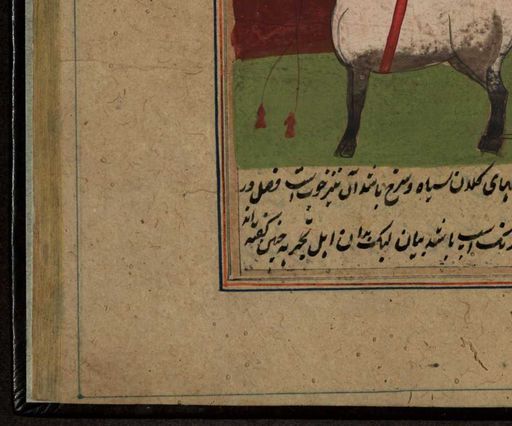 های کلان سیاه و سرخ باشد آن نیز خوب است فصل در
رنک اسپ باشد بیان نیک و بد ان اهل تجربه چنین کفته اند